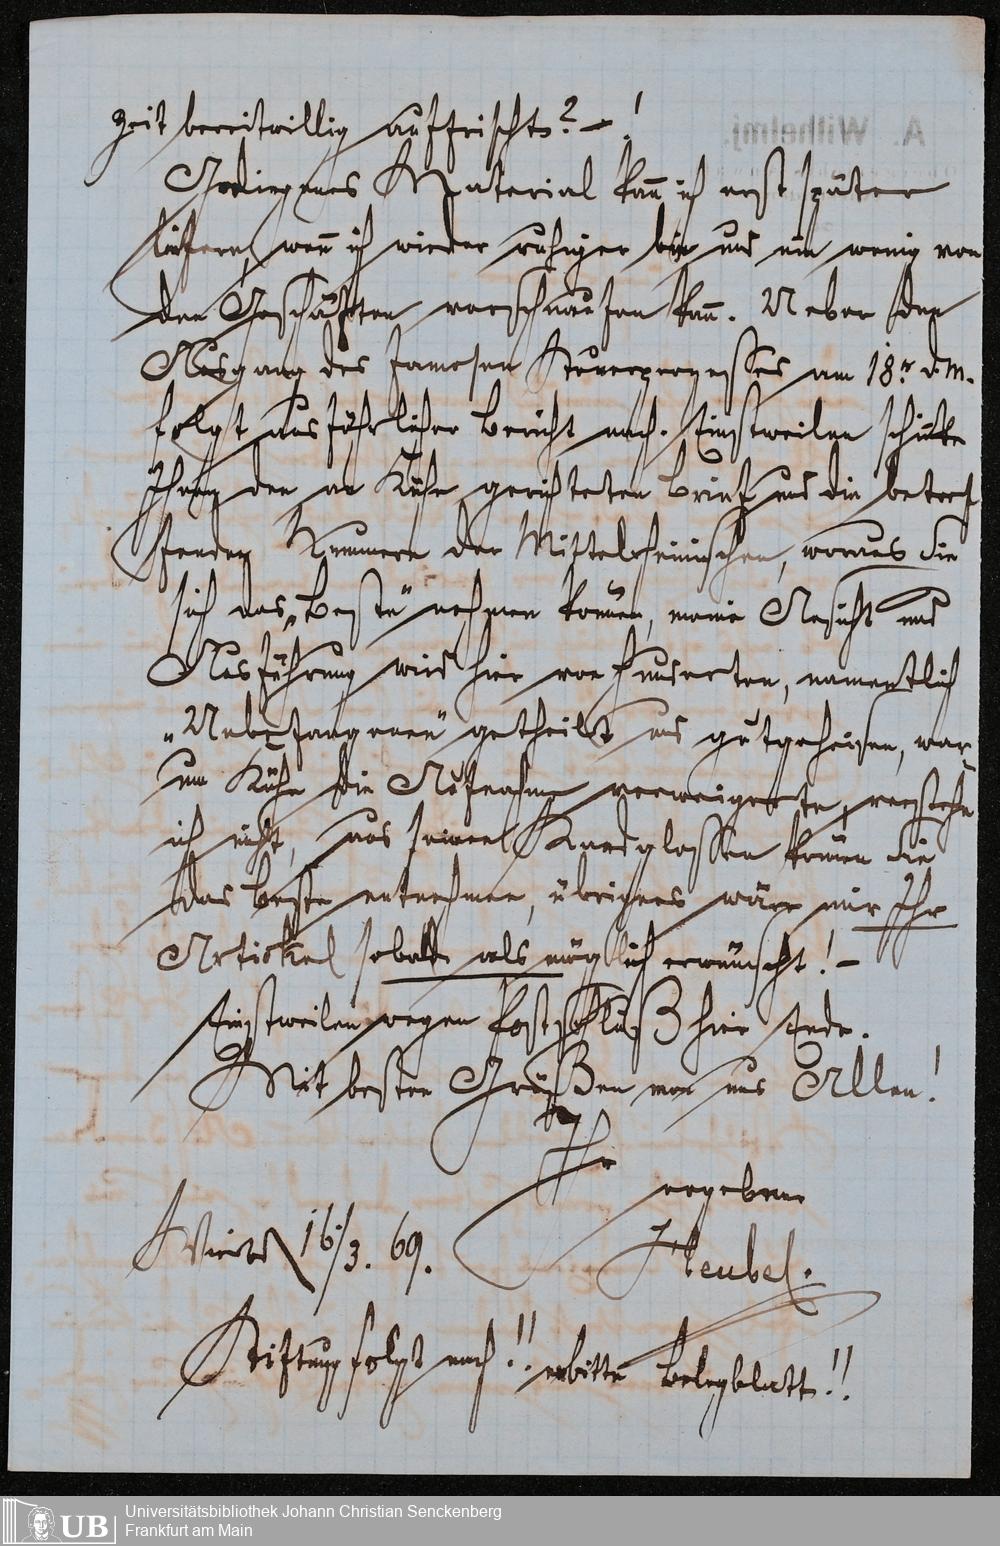 zeit bereitwillig auffrischts? – !
Gediegenes Material kann ich erst später
liefern, wenn ich wieder ruhiger bin und ein wenig von
den Geschäften verschnaufen kann. Ueber den
Ausgang des famosen Steuerprozesses am 18.r d.M.
folgt ausführlicher Bericht nach. Einstweilen schicke
Ihnen den an Kühn gerichteten Brief und die betref
fenden Nummern der Mittelrheinischen, woraus Sie
sich das „Beste“ nehmen können, meine Ansicht und
Ausführung wird hier von hunderten, namentlich
„Unbefangenen“ getheilt und gutgeheißen, war-
um Kühn die Aufnahme verweigerte, verstehe
ich nicht, aus seinen Randglossen können Sie
das Beste entnehmen, übrigens wäre mir Ihr
Artikel sobald als möglich erwünscht! –
Einstweilen wegen Postschluß hier Ende.
Mit besten Grüßen von uns Allen!
Ihr
ergebener
16/3. 69.
Heubel.
Stiftung folgt nach!! erbitte Belegblatt!!
A. Wilhelmj.
UB
Universitätsbibliothek Johann Christian Senckenberg
Frankfurt am Main